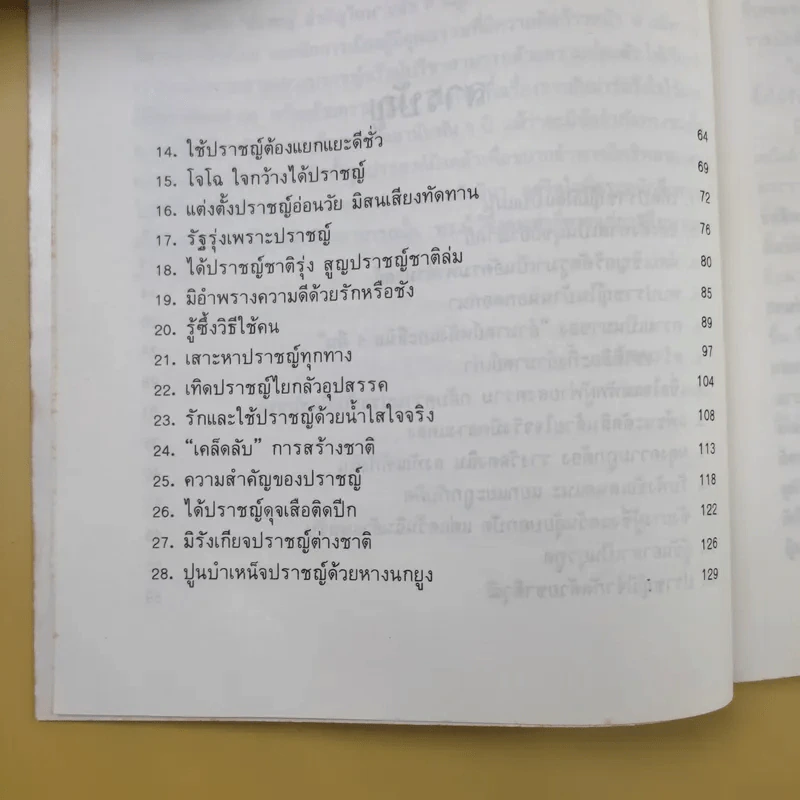 14. ใช้ปราชญ์ต้องแยกแยะดีชั่ว 64
15. โจโฉ ใจกว้างได้ปราชญ์ 69
16. แต่งตั้งปราชญ์อ่อนวัย มิสนเสียงทัดทาน 72
17. รัฐรุ่งเพราะปราชญ์ 76
18. ได้ปราชญ์ชาติรุ่ง สูญปราชญ์ชาติล่ม 80
19. มิอำพรางความดีด้วยรักหรือชัง 85
20. รู้ซึ้งวิธีใช้คน 89
21. เสาะหาปราชญ์ทุกทาง 97
22. เทิดปราชญ์ไยกลัวอุปสรรค 104
23. รักและใช้ปราชญ์ด้วยน้ำใสใจจริง 108
24. “เคล็ดลับ” การสร้างชาติ 113
25. ความสำคัญของปราชญ์ 118
26. ได้ปราชญ์ดุจเสือติดปีก 122
27. มิรังเกียจปราชญ์ต่างชาติ 126
28. ปูนบำเหน็จปราชญ์ด้วยหางนกยูง 129